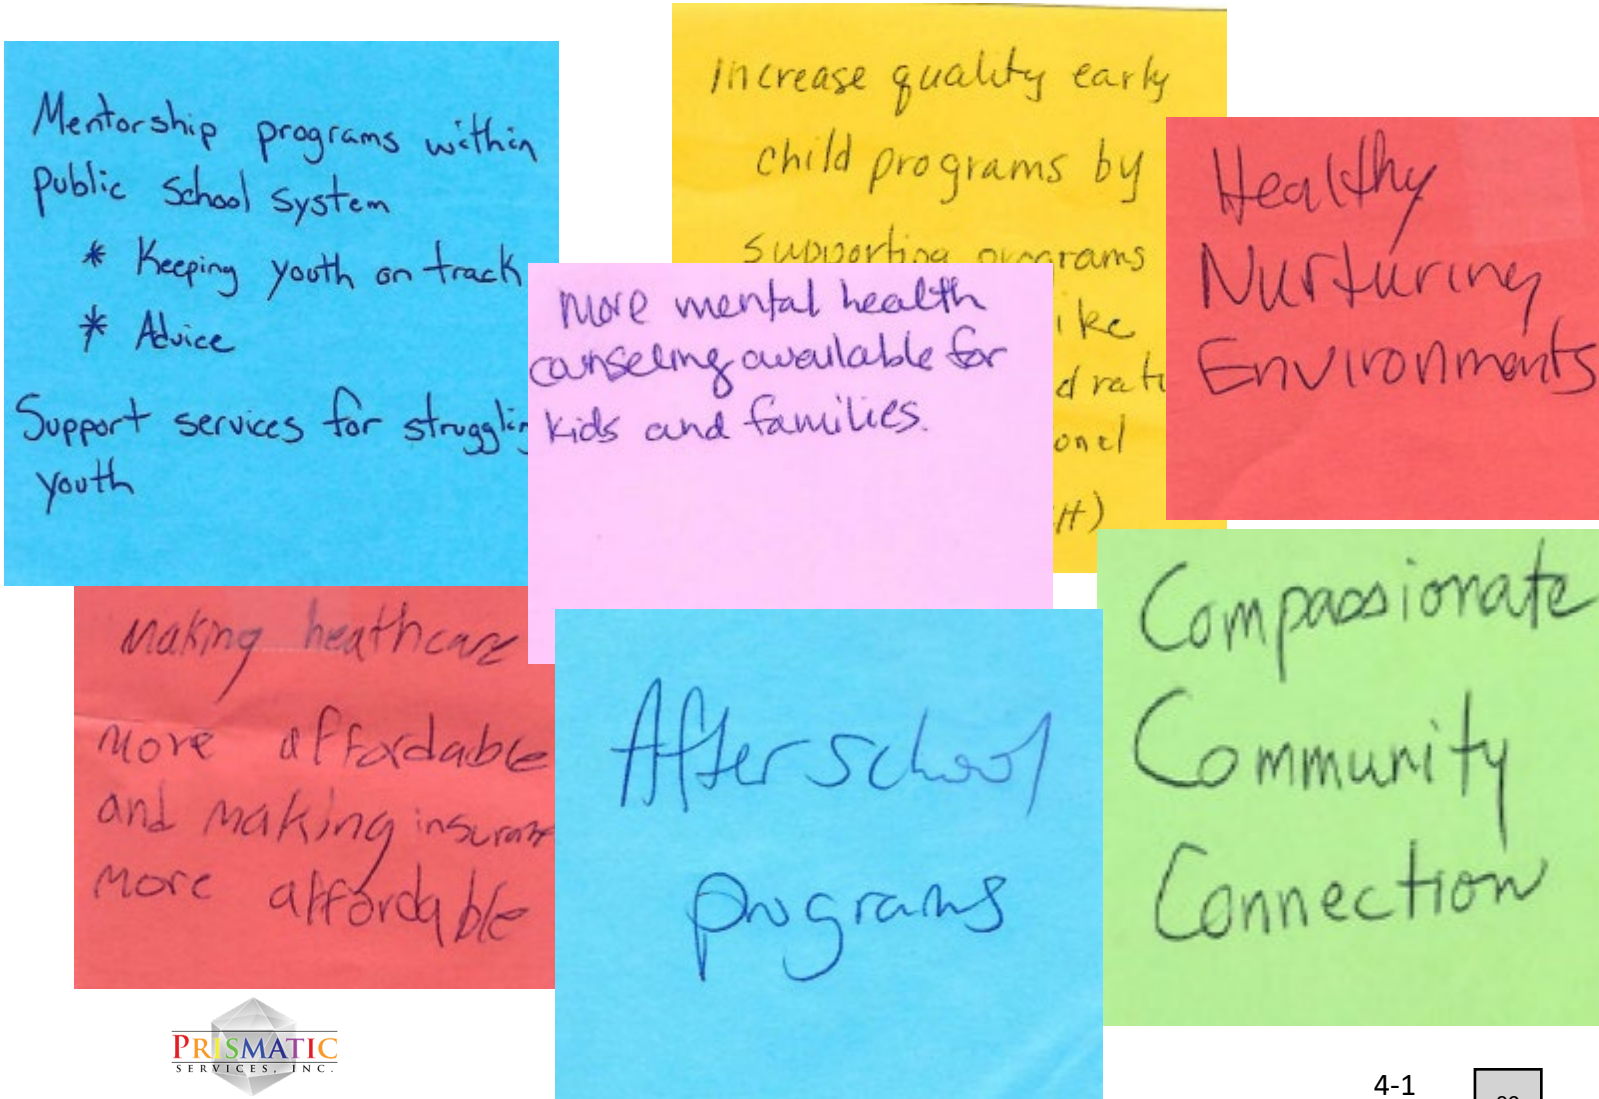 Mentorship programs within
public School system
* Keeping youth on track
* Advice
Support services for
youth
Increase quality early
child programs by
supporting programs
Healthy
Nurturing
Environments
More mental health
counseling available for
kids and families.
Making heathcare
more affordable
and making
more affordable
After school
programs
Compassionate
Community
Connection
PRISMATIC
SERVICES, INC.
4-1